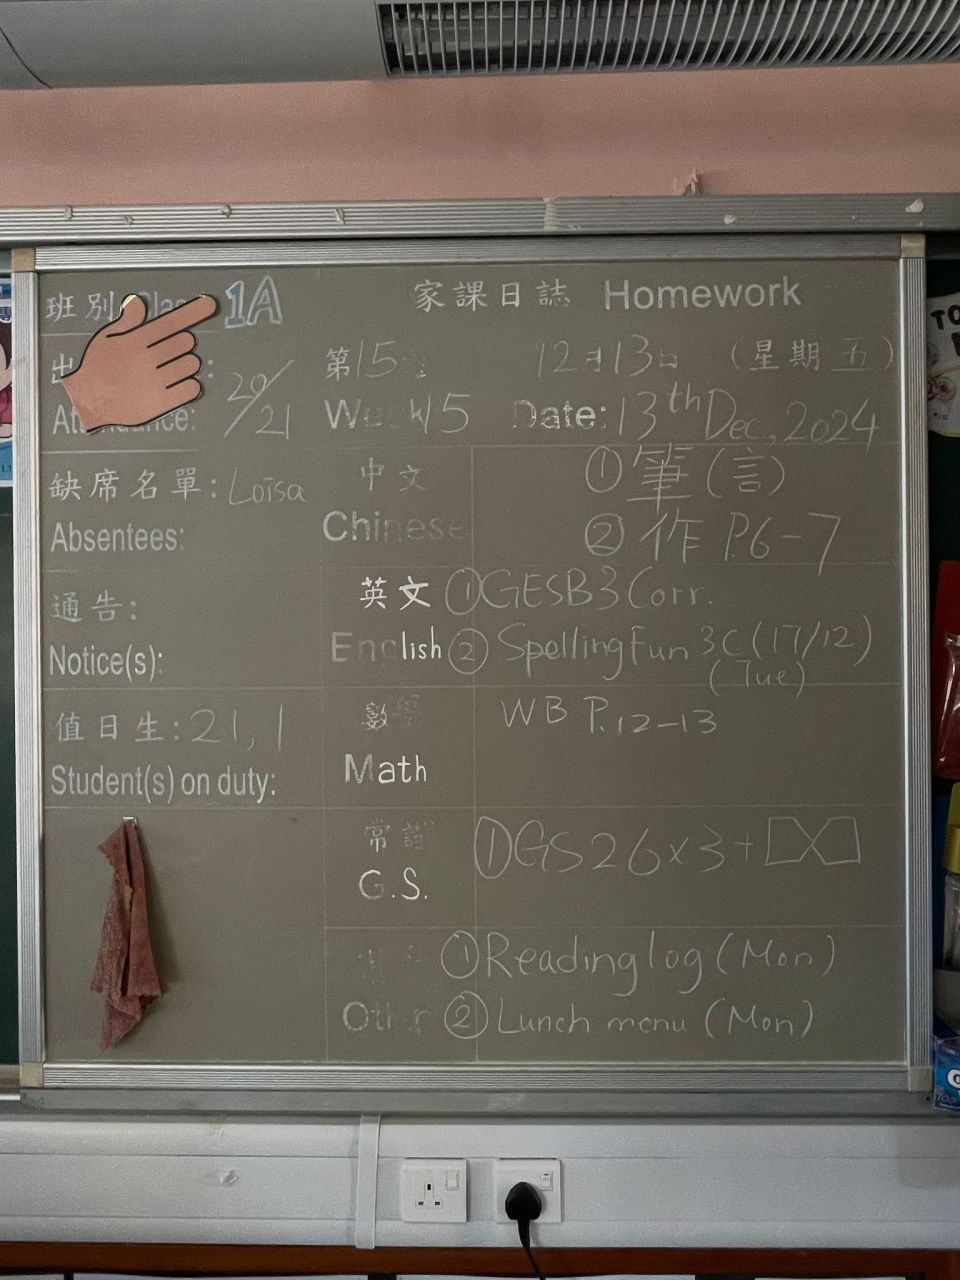 班別 Class 1A
家課日誌 Homework
出 : 20/21
Attendance:
第15 12月13日 (星期五)
Week 15 Date: 13th Dec., 2024
缺席名單: Loīsa
Absentees:
中文 ① 筆(言)
Chinese ② 作 P.6-7
通告:
Notice(s):
英文 ① GESB3 Corr.
English ② Spelling Fun 3C (17/12)
(Tue)
值日生: 21, 1
Student(s) on duty:
數學 WB P.12-13
Math
常識 ① GS 26×3+
G.S.
① Reading log (Mon)
Other ② Lunch menu (Mon)